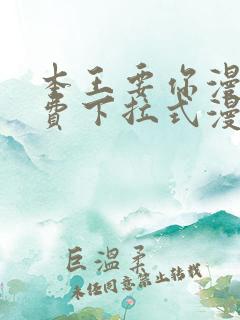 本王要你漫
费下拉式漫
巨温柔
未经同意禁止转载